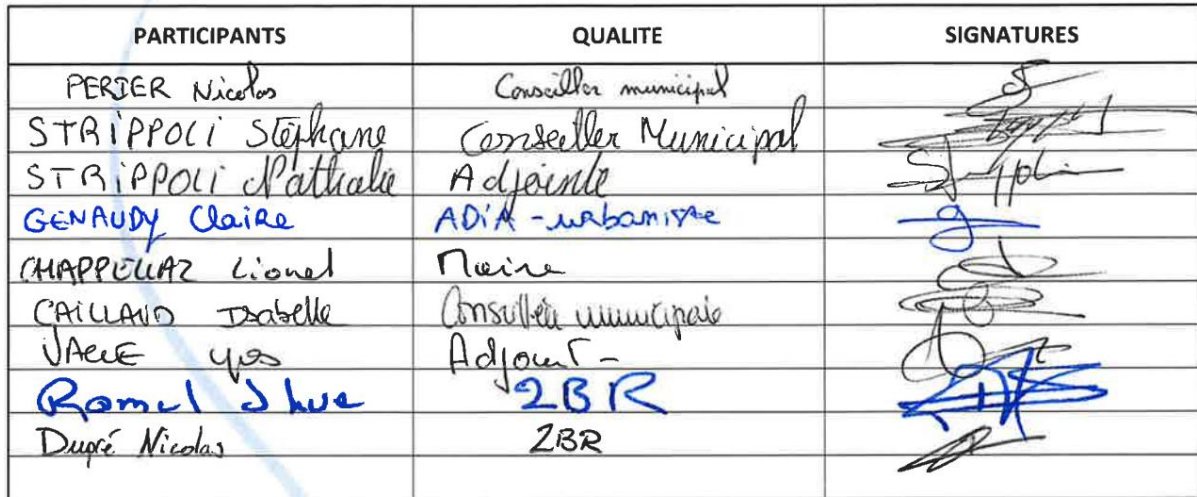 PARTICIPANTS QUALITE SIGNATURES
PERIER Nicolas Conseiller municipal
STRIPPOLI Stéphane Conseiller Municipal
STRIPPOLI Nathalie Adjointe
GENAUDY Claire ADIA - urbaniste
CHAPPELLAZ Lionel Maire
CAILLAUD Isabelle Conseillère municipale
Adjoint -
2BR
Dupré Nicolas 2BR